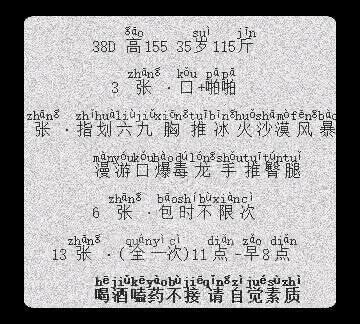 gāo suì jīn
38D 高155 35岁115斤
zhāng kǒu pāpā
3 张 · 口+啪啪
zhāng zhǐhuàliùjiǔxiōngtuībīnghuǒshāmòfēngbào
张 · 指划六九 胸 推 冰 火沙漠 风 暴
mànyóukǒubàodúlóngshǒutuītúntuǐ
漫游口爆毒龙 手 推臀腿
zhāng bāoshíbùxiàncì
6 张 · 包时不限次
zhāng quányícì diǎn zǎo diǎn
13 张 · (全一次)11点-早8点
hējiǔkēyàobùjiēqǐngzìjuésùzhì
喝酒嗑药不接 请 自觉素质